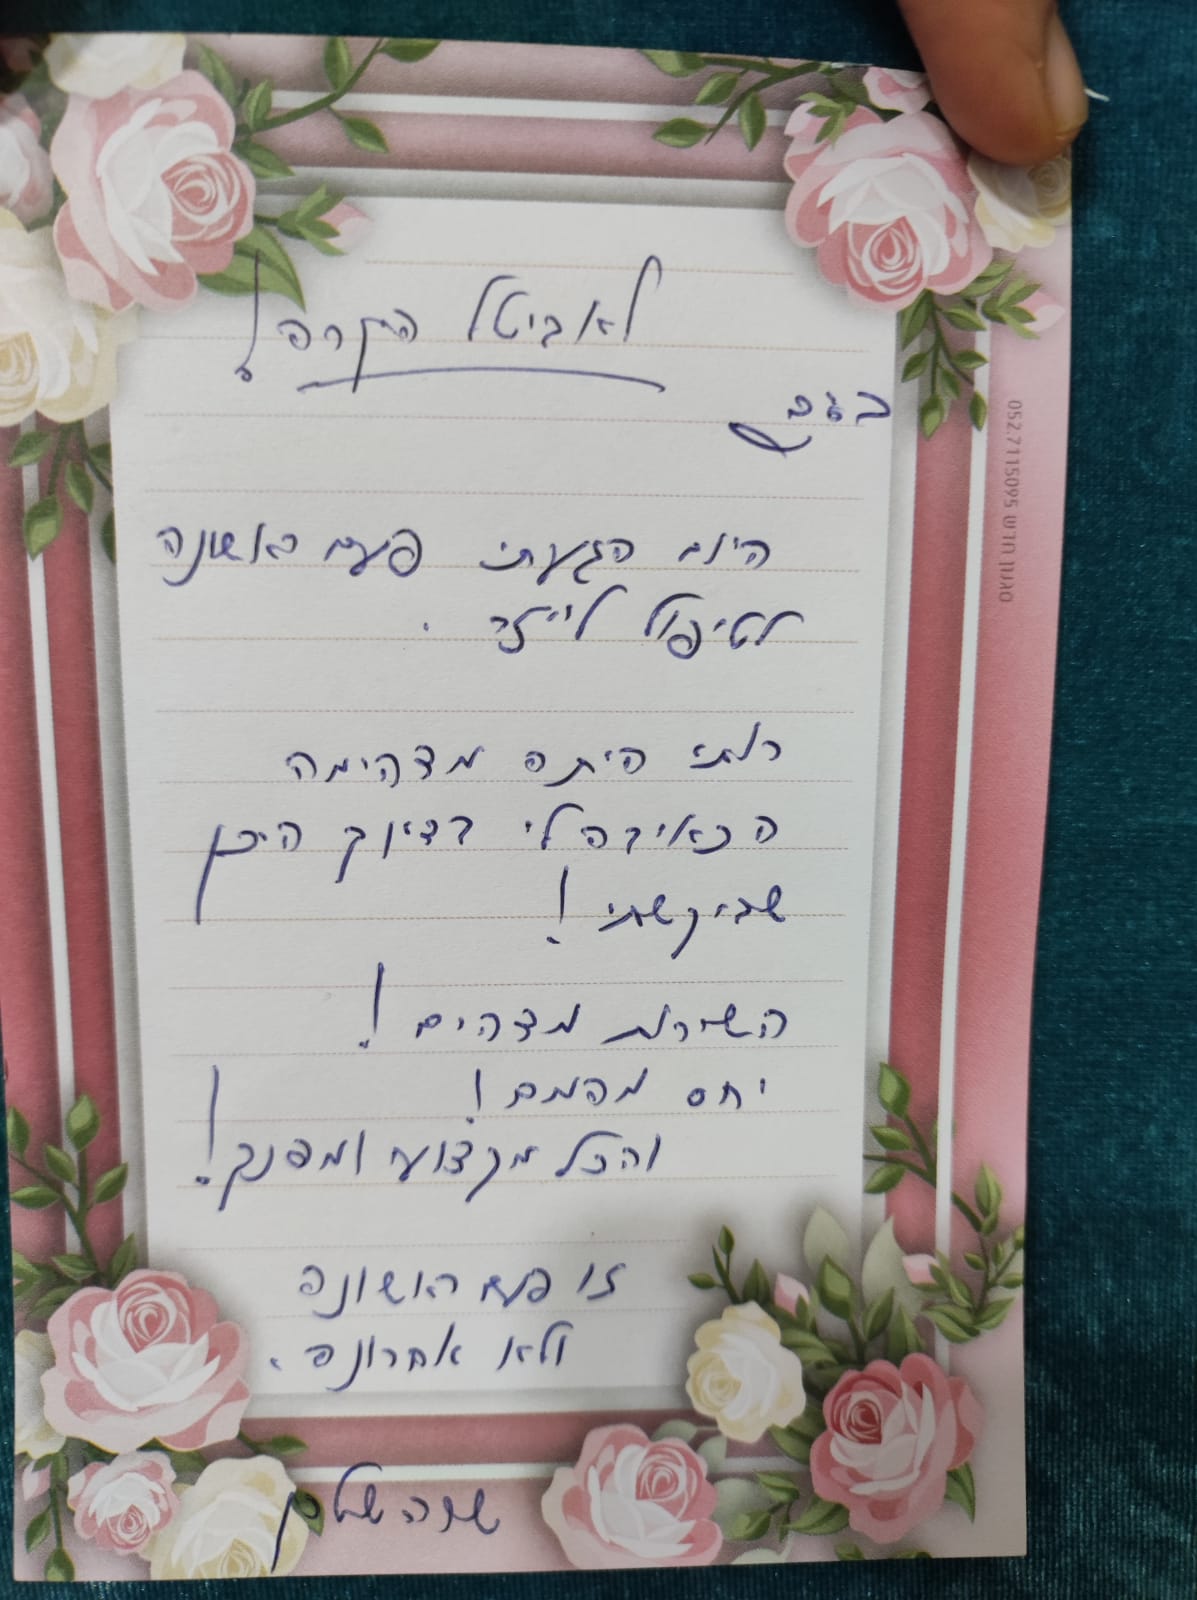 לאביטל היקרה!
היום הגעתי פעם ראשונה
לטיפול לייזר.
רותי היתה מצהימה
הכאיבה לי בדיוק היכן
שביקשתי!
השירות מצהים!
יחס מהמם!
והכל מקצועי ומפנק!
זו פעם ראשונה
ולא אחרונה.
שרה
סגנון חדש 052.7115095